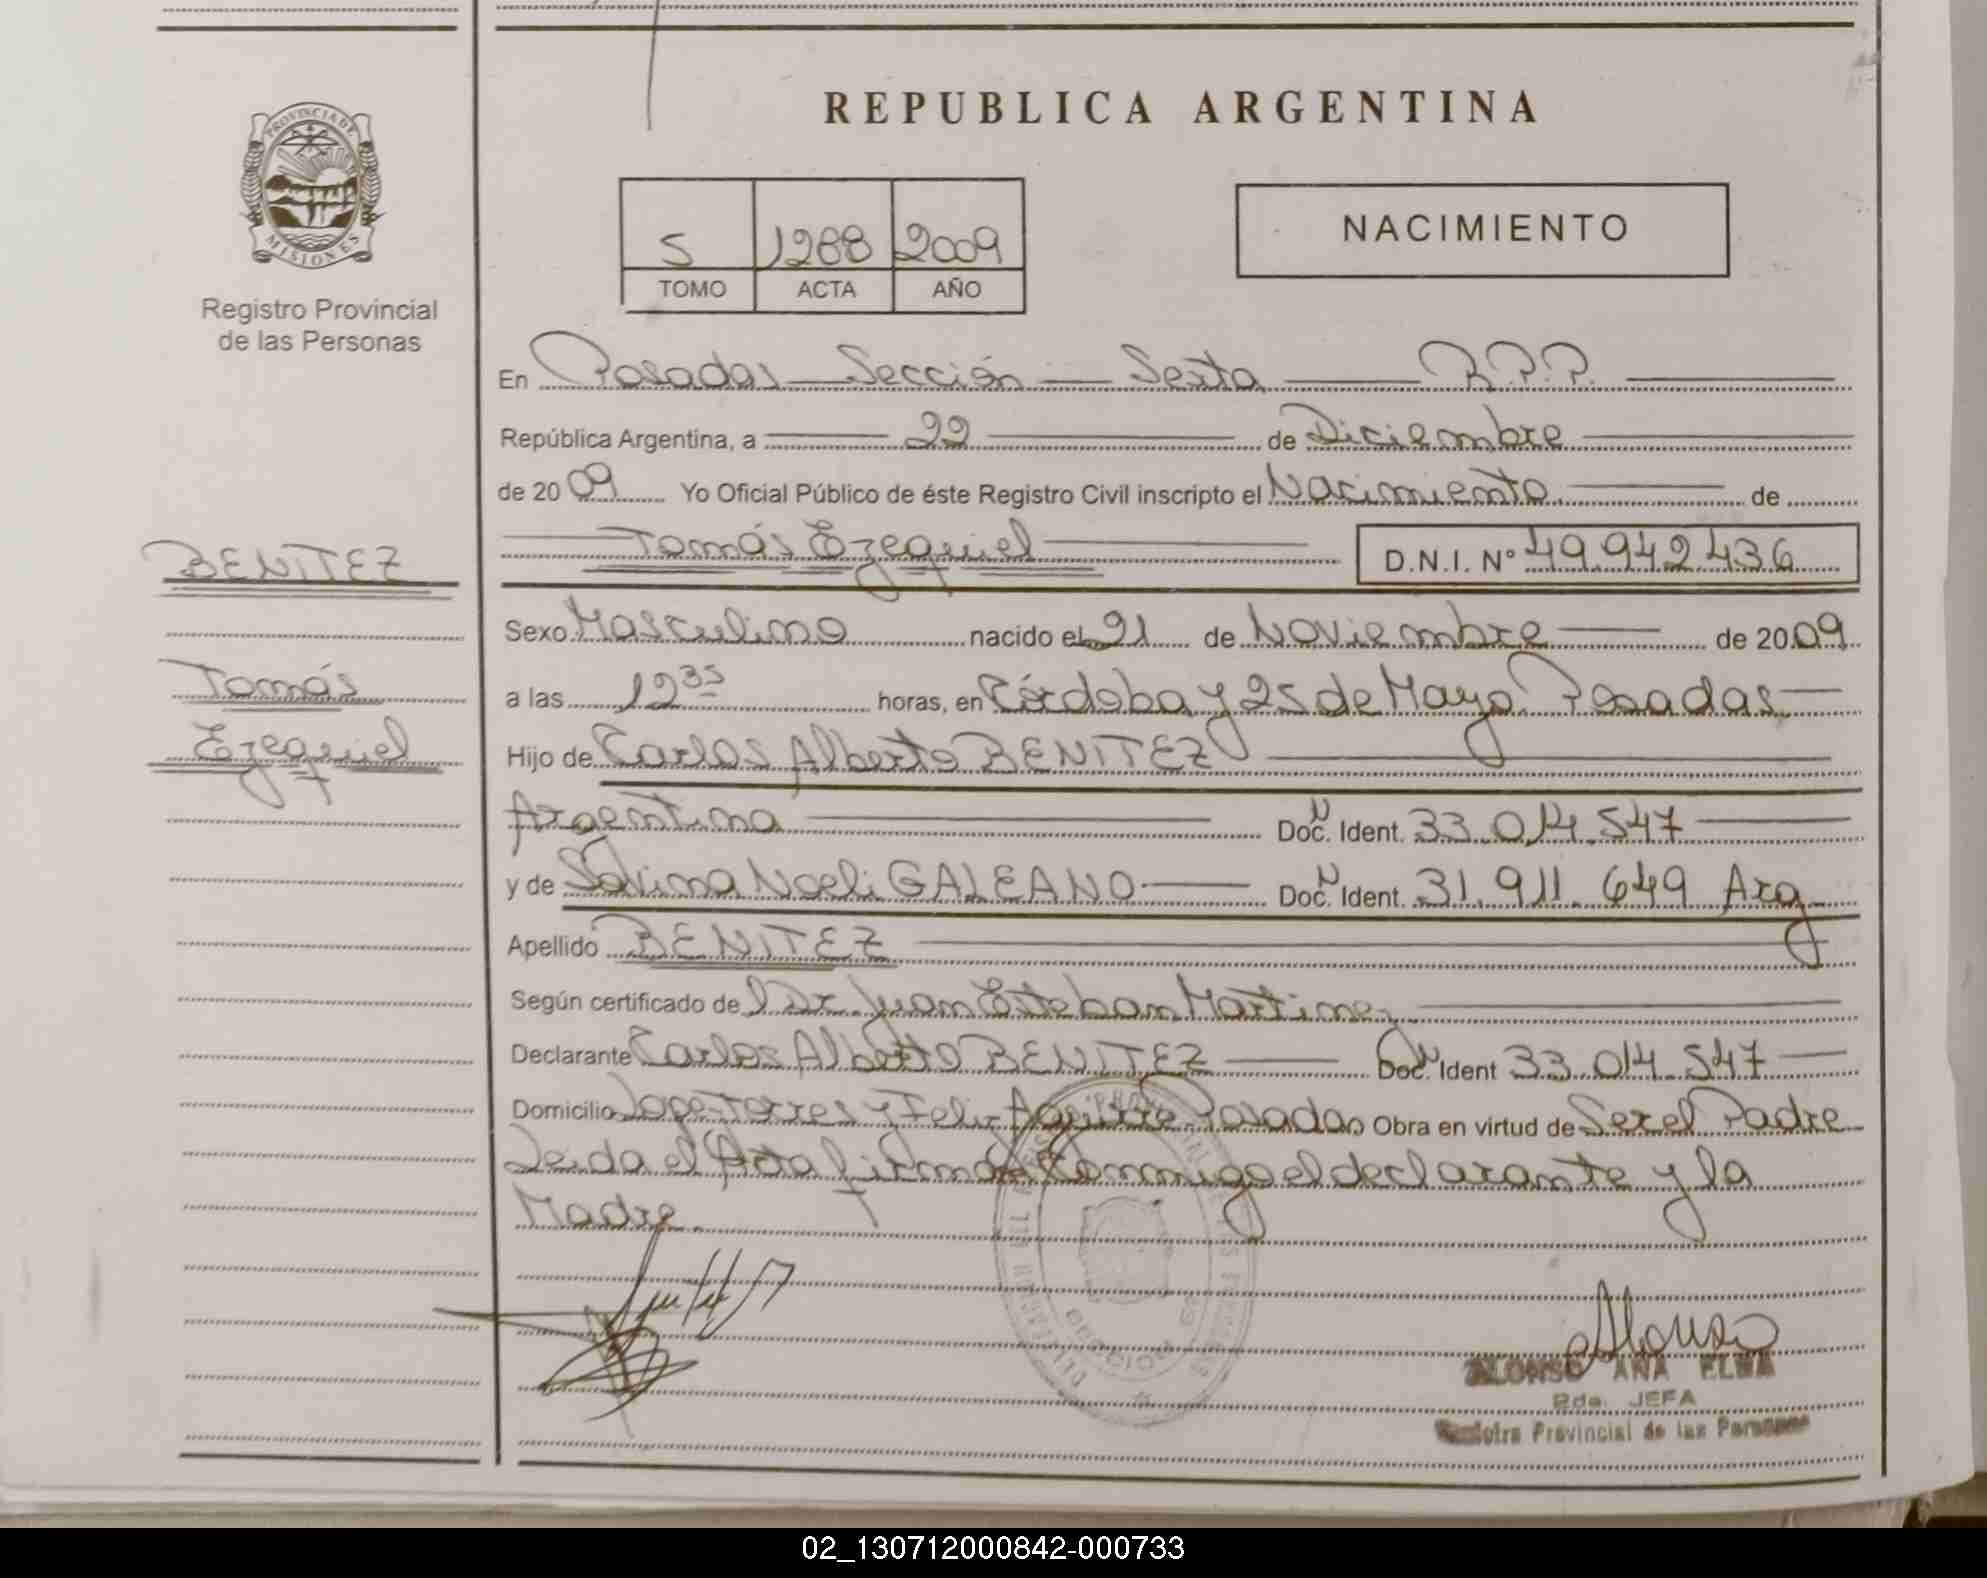 PROVINCIA DE
MISIONES
Registro Provincial
de las Personas
REPUBLICA ARGENTINA
5 1288 2009
TOMO ACTA AÑO
NACIMIENTO
En Posadas Sección Sexta R.P.P.
República Argentina, a 22 de Diciembre
de 2009 Yo Oficial Público de éste Registro Civil inscripto el Nacimiento de
Tomás Ezequiel D.N.I. Nº 49.942.436
BENITEZ
Tomás
Ezequiel
Sexo Masculino nacido el 21 de Noviembre de 2009
a las 12 35 horas, en Córdoba y 25 de Mayo Posadas
Hijo de Carlos Alberto BENITEZ
Argentina Doc. Ident. 33.014.547
y de Noeli GALEANO Doc. Ident. 31.911.649 Arg
Apellido BENITEZ
Según certificado del Dr. Juan Esteban Martinez
Declarante Carlos Alberto BENITEZ Doc. Ident 33.014.547
Domicilio Lope Torres y Felix Aguirre Posadas Obra en virtud de Ser el Padre
Leida el Acta firman Conmigo el declarante y la
Madre.
Alonso
ALONSO ANA ELBA
JEFA
Registro Provincial de las Personas
02_130712000842-000733